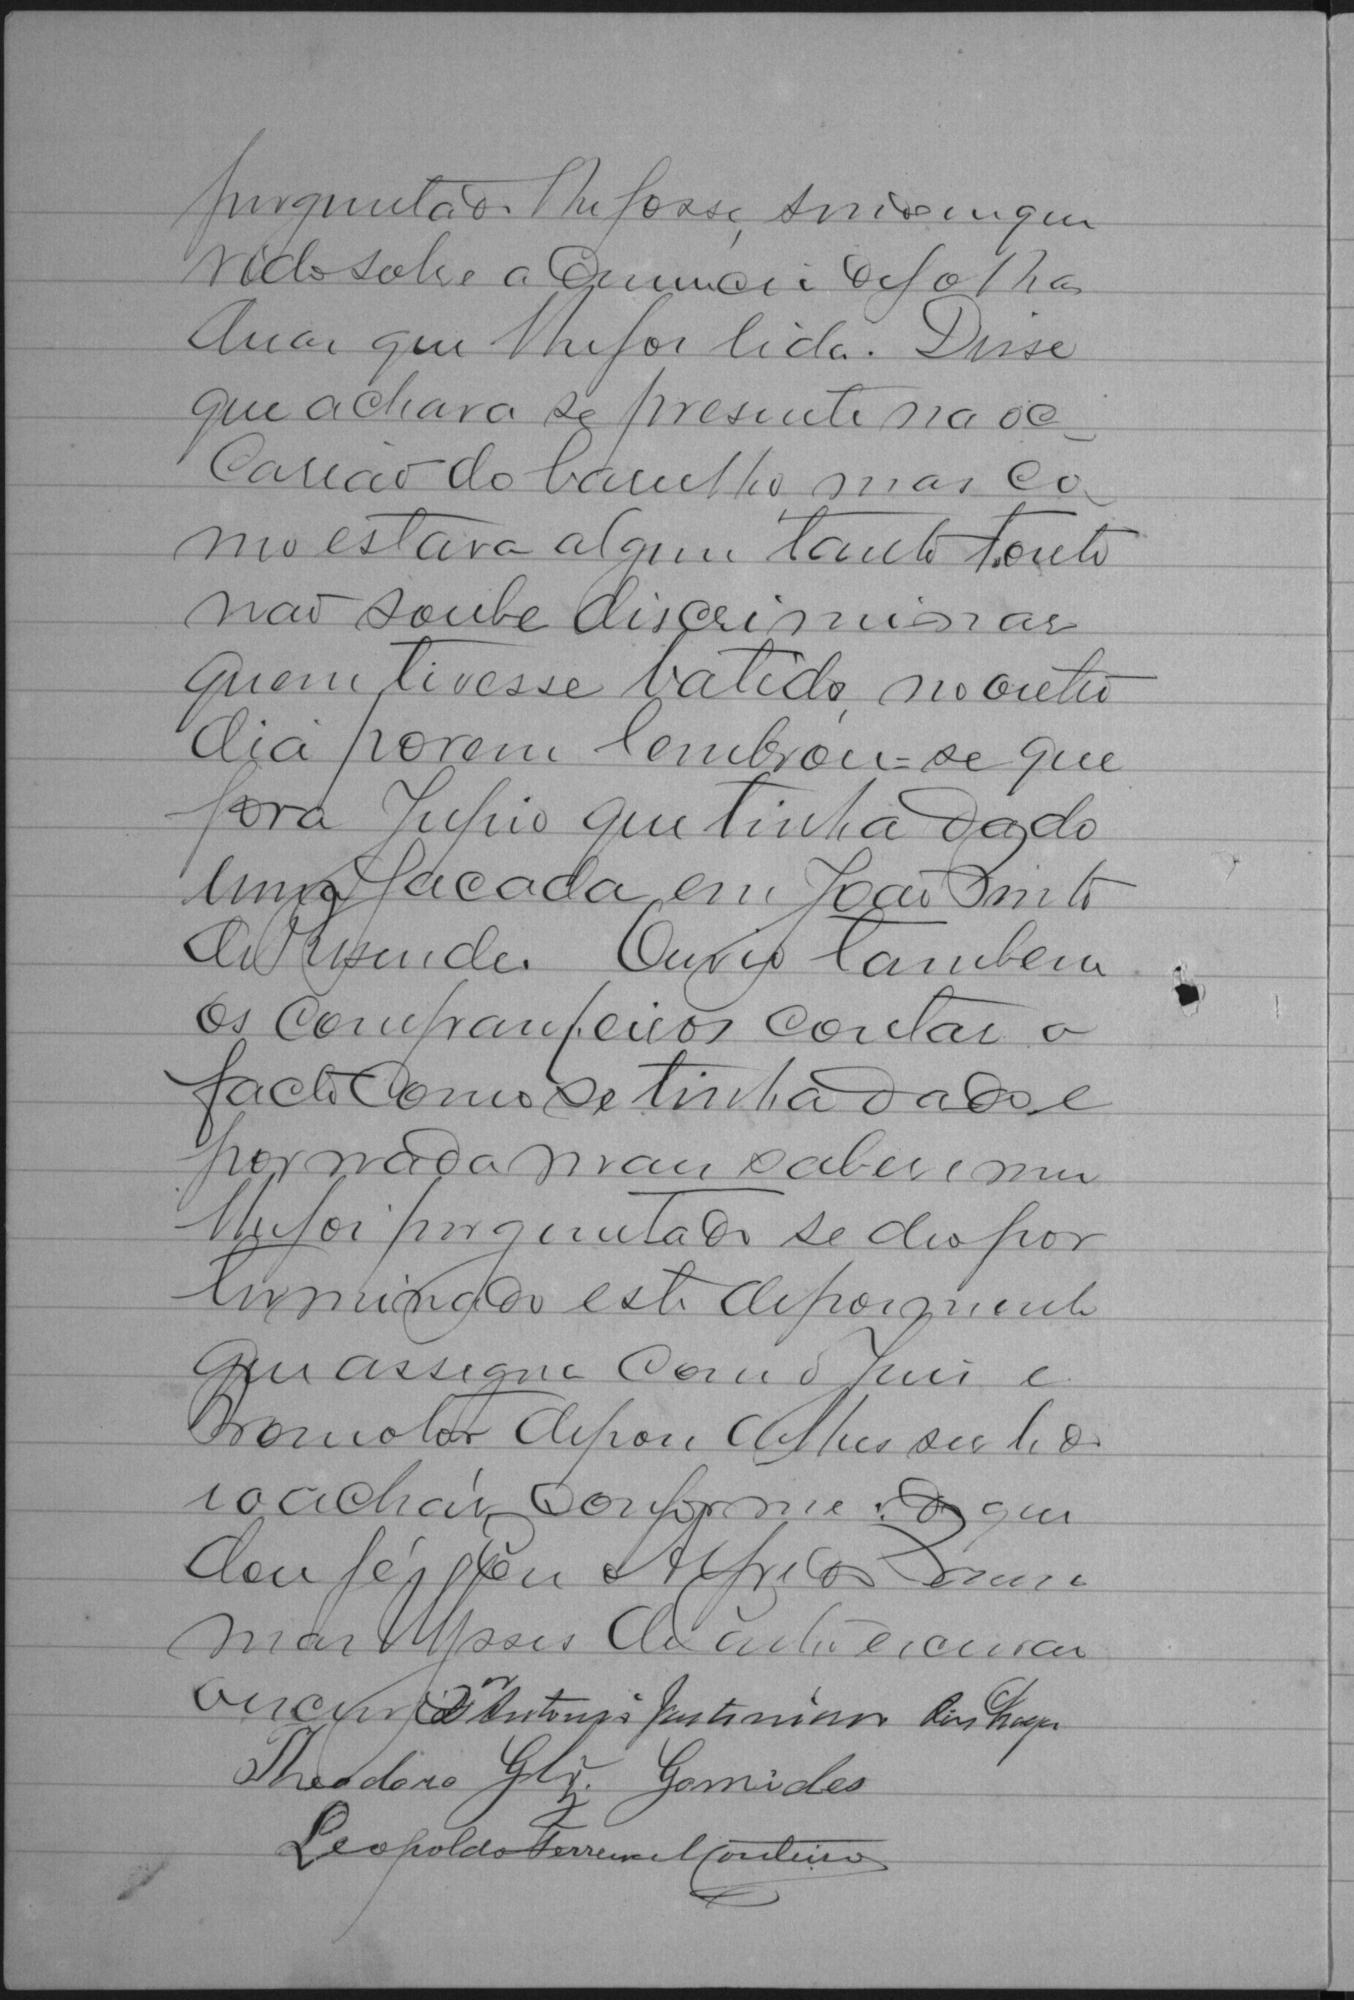 perguntado lhe fosse, sendo inque
rido sobre a denuncia de folhas
duas que lhe foi lida. Disse
que achava se presente na oc
casião do barulho, mas co
mo estava algum tanto tonto
não soube discriminar
quem tivesse batido, no outro
dia porem lembrou=se que
fora Jupio que tinha dado
uma facada em João Pinto
de Resende. Ouvio tambem
os companheiros contar o
facto como se tinha dado e
por nada mais saber e nem
lhe foi perguntado se deo por
terminado este depoimento
que assigna com o Juiz e
Promotor depois de lhes ser lido
e o achar conforme do que
dou fé, Eu Alfredo
mar Ulysses de escrivam
escrevi Dor Antonio Justiniano das Chagas
Theodoro Glz. Gomides
Leopoldo Ferreira Monteiro